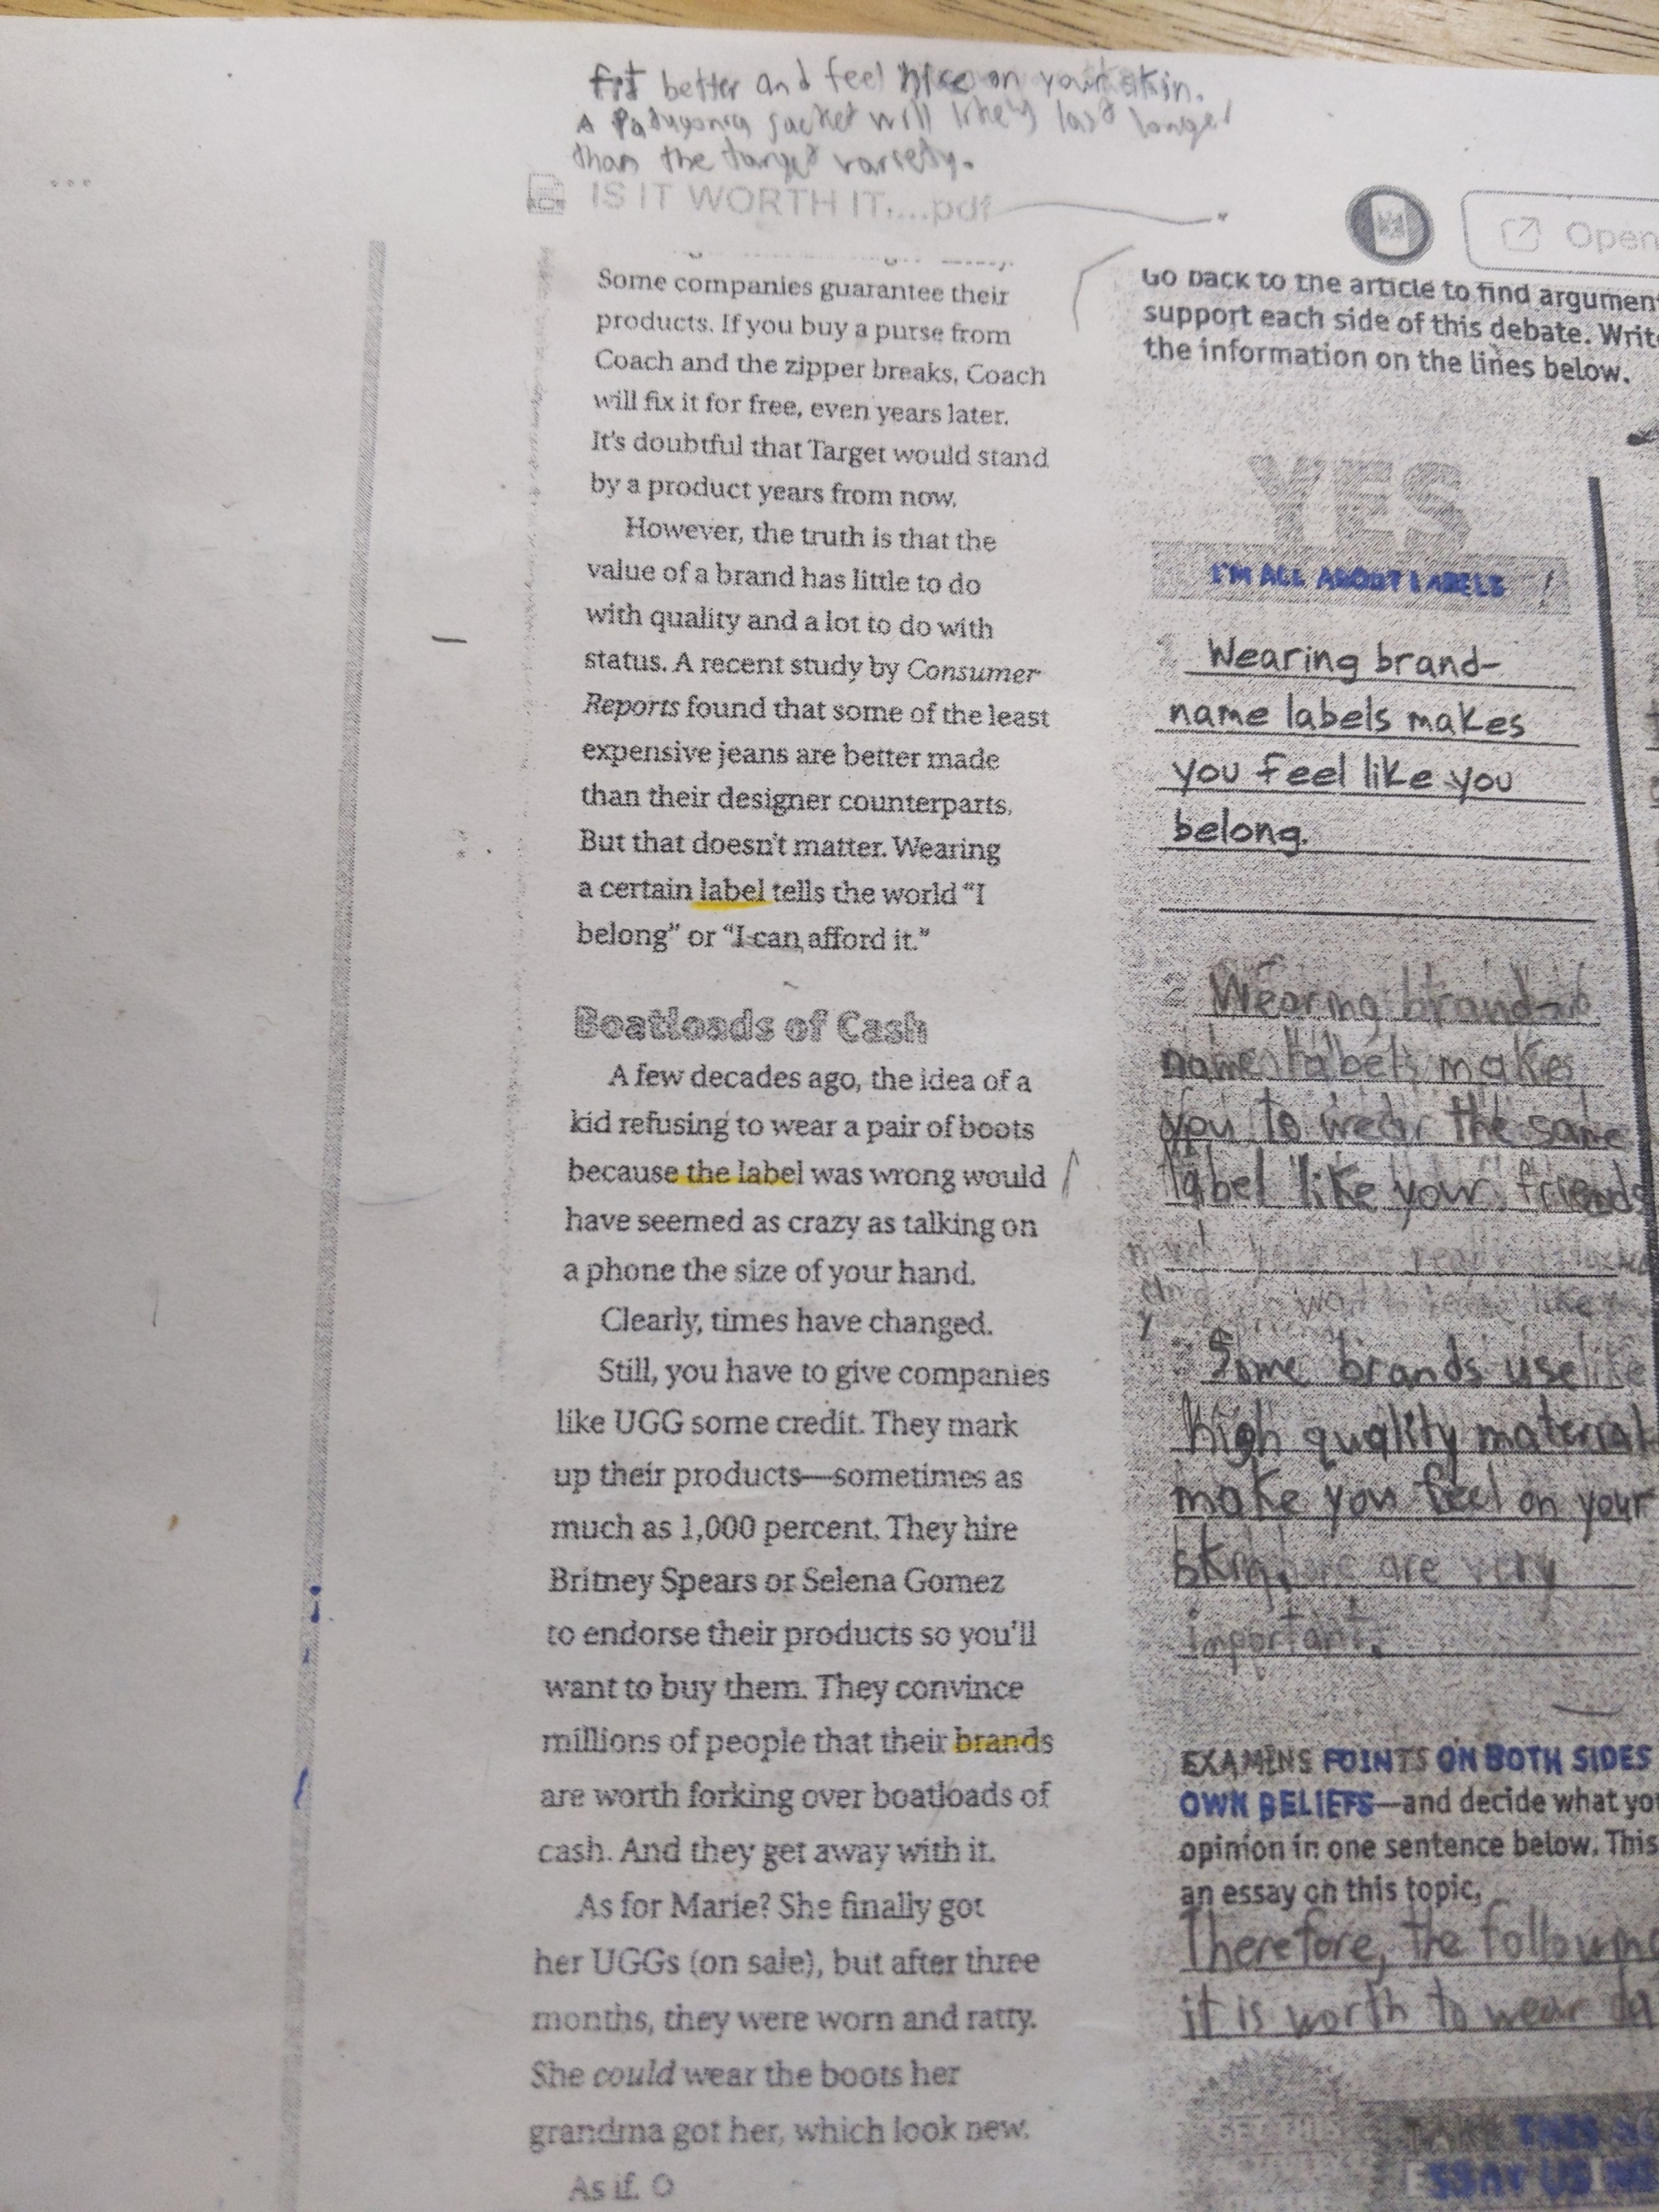 fit better and feel nice on your skin.
A Patagonia jacket will likely last longer
than the target variety.
IS IT WORTH IT....pdf
Open
Some companies guarantee their
products. If you buy a purse from
Coach and the zipper breaks, Coach
will fix it for free, even years later.
It's doubtful that Target would stand
by a product years from now.
However, the truth is that the
value of a brand has little to do
with quality and a lot to do with
status. A recent study by Consumer
Reports found that some of the least
expensive jeans are better made
than their designer counterparts.
But that doesn't matter. Wearing
a certain label tells the world "I
belong" or "I can afford it."
Boatloads of Cash
A few decades ago, the idea of a
kid refusing to wear a pair of boots
because the label was wrong would
have seemed as crazy as talking on
a phone the size of your hand.
Clearly, times have changed.
Still, you have to give companies
like UGG some credit. They mark
up their products—sometimes as
much as 1,000 percent. They hire
Britney Spears or Selena Gomez
to endorse their products so you'll
want to buy them. They convince
millions of people that their brands
are worth forking over boatloads of
cash. And they get away with it.
As for Marie? She finally got
her UGGs (on sale), but after three
months, they were worn and ratty.
She could wear the boots her
grandma got her, which look new.
As if.
Go back to the article to find
support each side of this debate.
the information on the lines below.
YES
I'M ALL ABOUT LABELS!
Wearing brand-
name labels makes
you feel like you
belong.
2. Wearing brand-
name labels makes
you to wear the same
label like your friends
Some brands use like
high quality material
make you feel on your
skin, are very
important.
EXAMINE POINTS ON BOTH SIDES
OWN BELIEFS—and decide what
opinion in one sentence below. This
an essay on this topic.
Therefore, the following
it is worth to wear